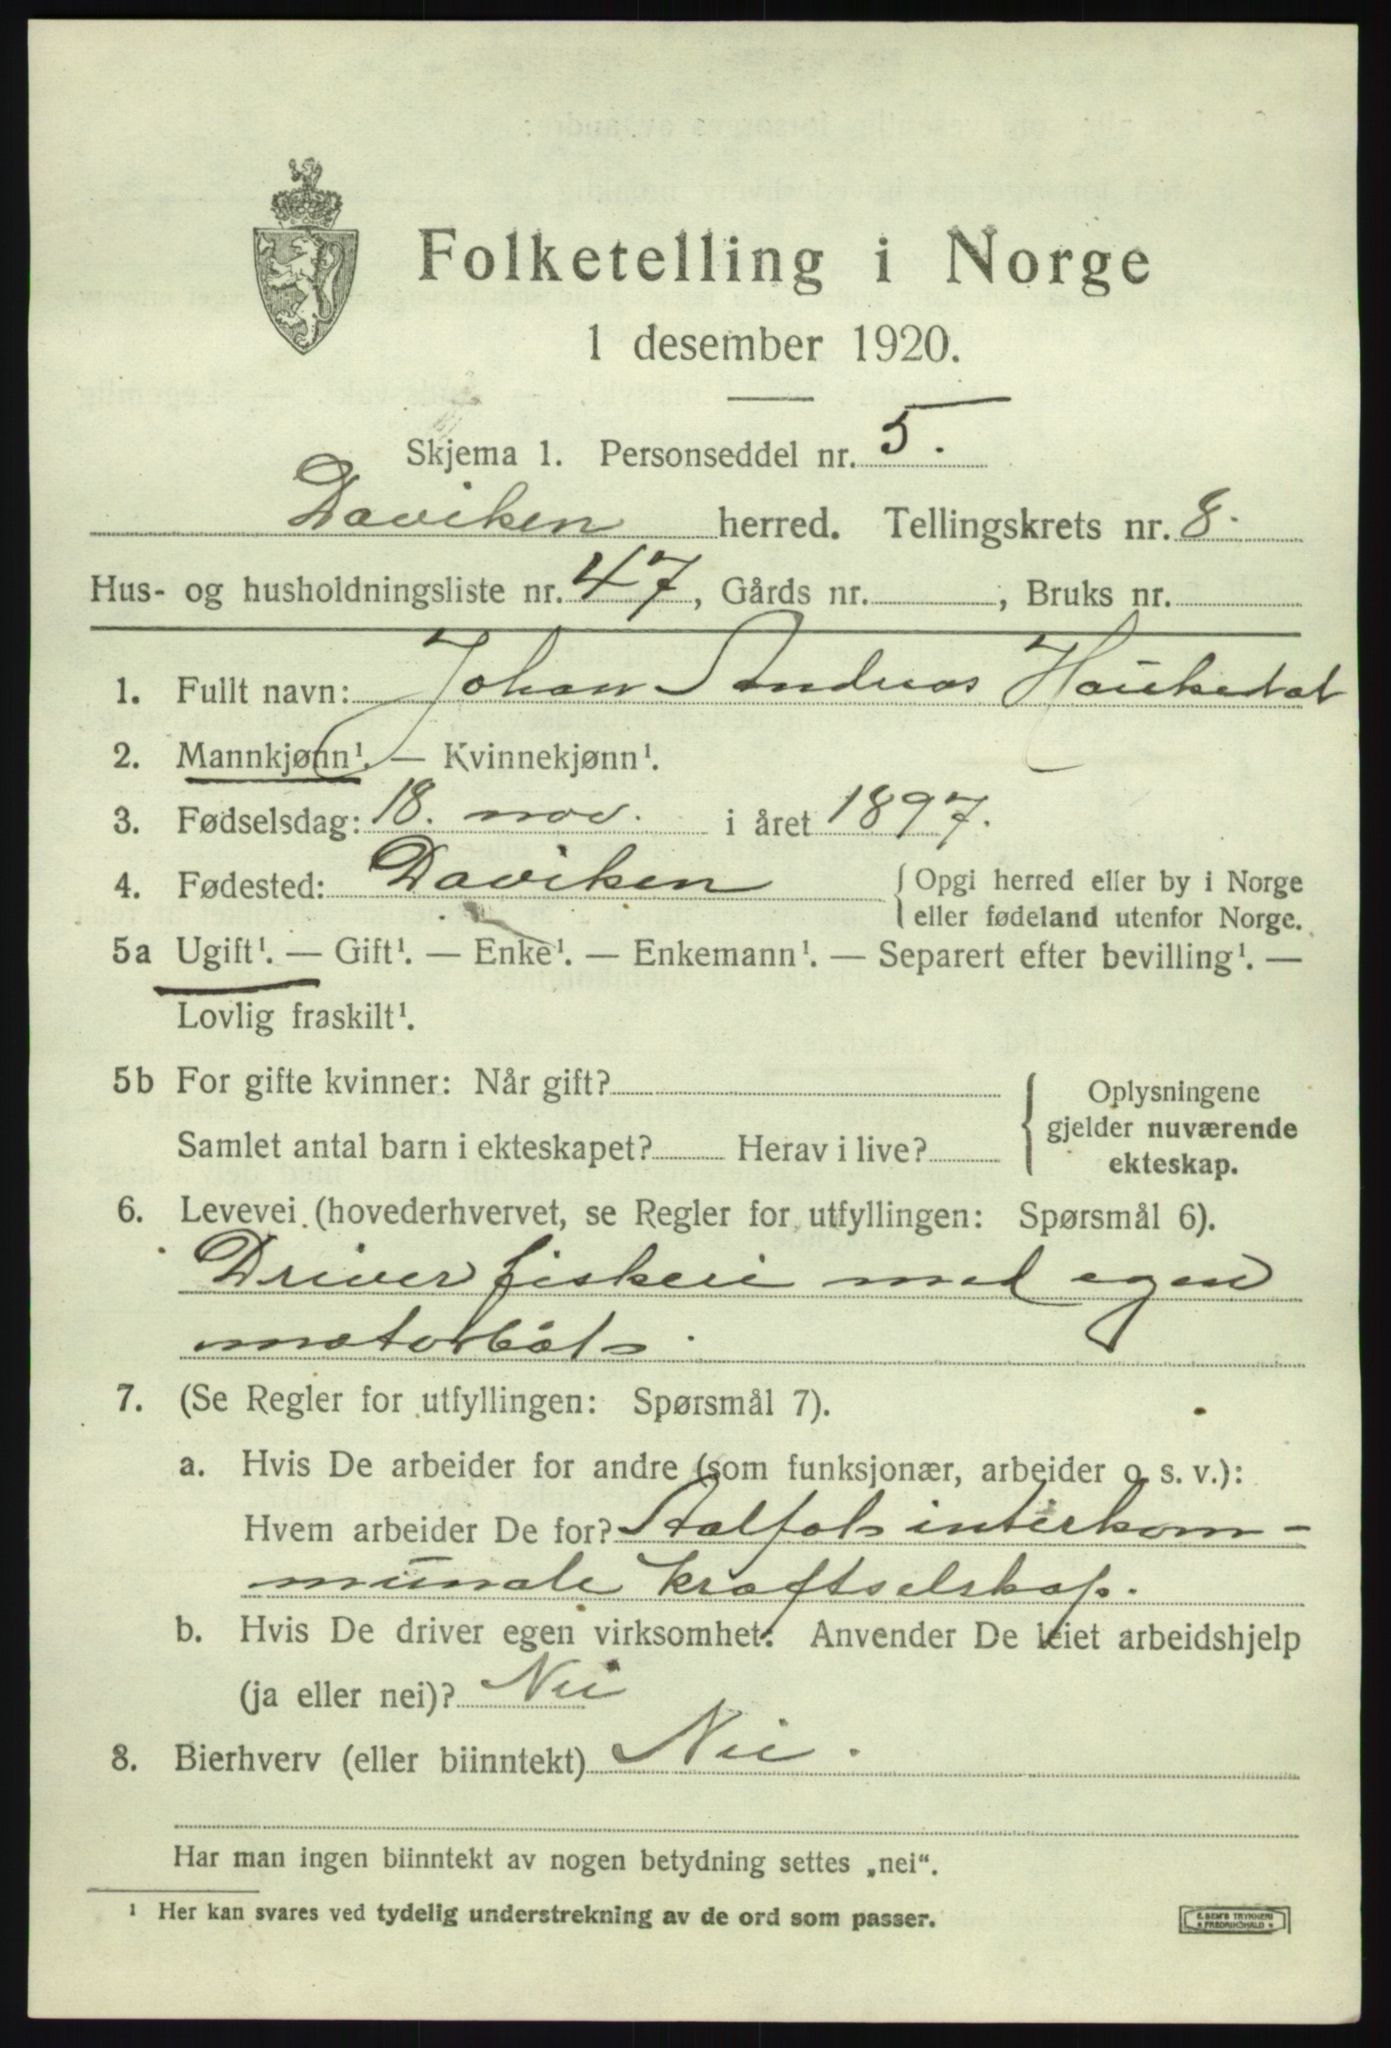 Folketelling i Norge
1 desember 1920.
Skjema 1. Personseddel nr. 5.
Daviken herred. Tellingskrets nr. 8.
Hus- og husholdningsliste nr. 47, Gårds nr. , Bruks nr.
1. Fullt navn: Johan Andreas Haukedal
2. Mannkjønn¹. — Kvinnekjønn¹.
3. Fødselsdag: 18. nov. i året 1897.
4. Fødested: Daviken { Opgi herred eller by i Norge
eller fødeland utenfor Norge.
5a Ugift¹. — Gift¹. — Enke¹. — Enkemann¹. — Separert efter bevilling¹. —
Lovlig fraskilt¹.
5b For gifte kvinner: Når gift? { Oplysningene
gjelder nuværende
Samlet antal barn i ekteskapet? Herav i live? ekteskap.
6. Levevei (hovederhvervet, se Regler for utfyllingen: Spørsmål 6).
Driver fiskeri med egen
motorbåt.
7. (Se Regler for utfyllingen: Spørsmål 7).
a. Hvis De arbeider for andre (som funksjonær, arbeider o. s. v.):
Hvem arbeider De for? Aalfot interkom-
munale kraftselskap.
b. Hvis De driver egen virksomhet: Anvender De leiet arbeidshjelp
(ja eller nei)? Nei
8. Bierhverv (eller biinntekt) Nei.
Har man ingen biinntekt av nogen betydning settes „nei“.
¹ Her kan svares ved tydelig understrekning av de ord som passer.
E. SEM'S TRYKKERI
FREDRIKSHALD